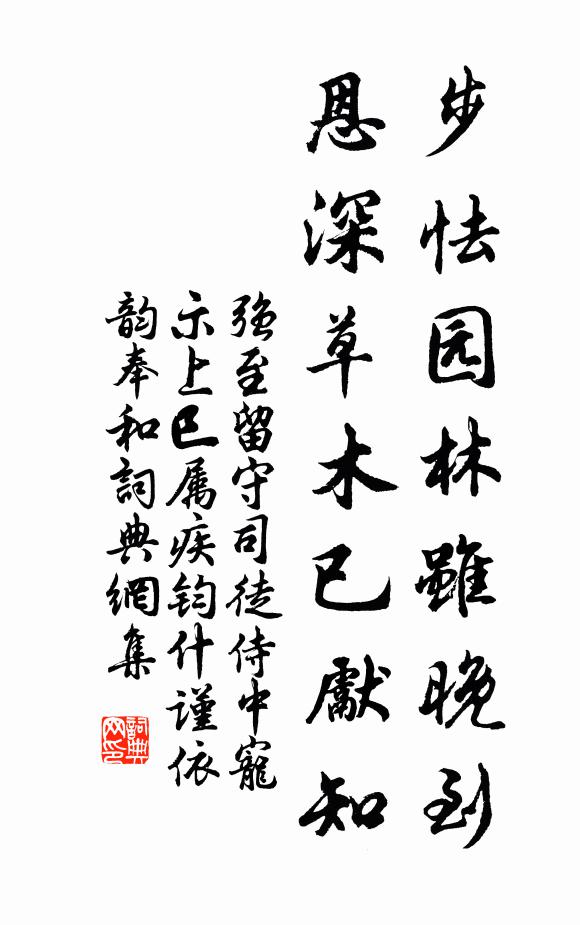 步怯园林雖晚到
恩深草木已獻知
强至留守司徒侍中寵
示上巳属疾钧什谨依
韵奉和詞典網集
詞典网印